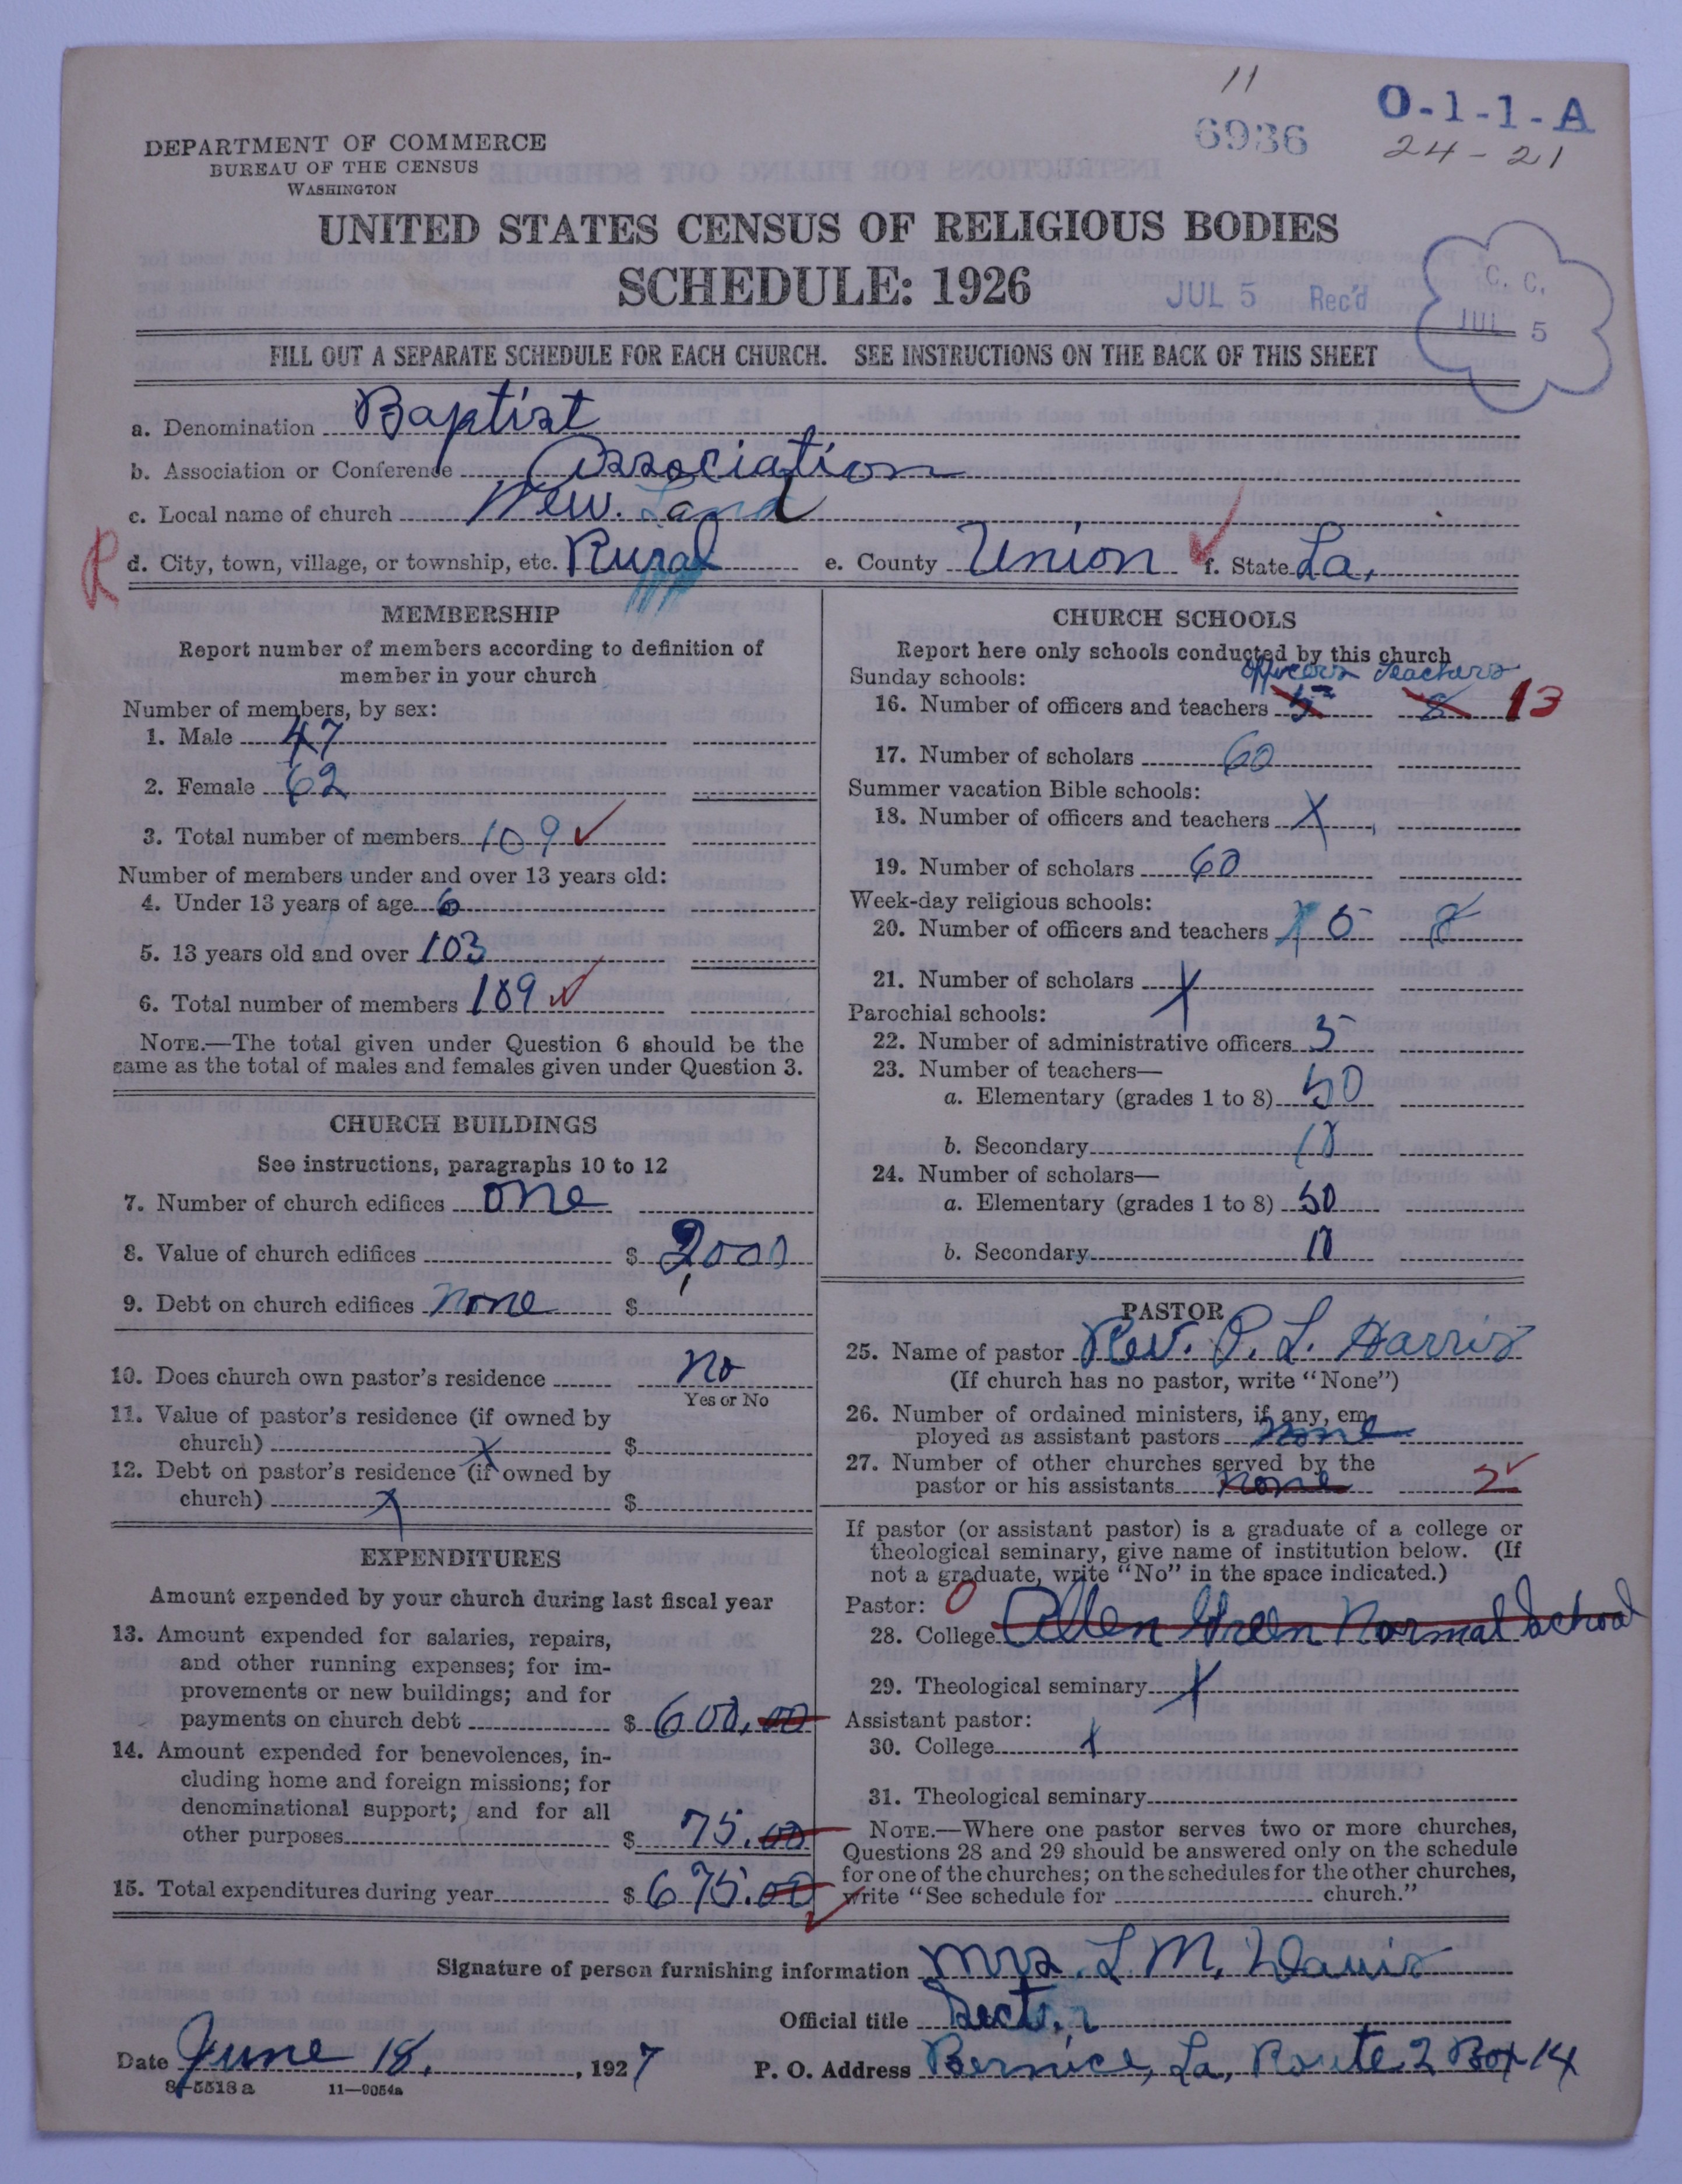 11
6936
O-1-1-A
24-21
DEPARTMENT OF COMMERCE
BUREAU OF THE CENSUS
WASHINGTON
UNITED STATES CENSUS OF RELIGIOUS BODIES
SCHEDULE: 1926
JUL 5 Rec'd
C. C.
JUL 5
FILL OUT A SEPARATE SCHEDULE FOR EACH CHURCH. SEE INSTRUCTIONS ON THE BACK OF THIS SHEET
a. Denomination Baptist
b. Association or Conference Association
c. Local name of church New. Land
R d. City, town, village, or township, etc. Rural e. County Union f. State La.
MEMBERSHIP
Report number of members according to definition of
member in your church
Number of members, by sex:
1. Male 47
2. Female 62
3. Total number of members 109
Number of members under and over 13 years old:
4. Under 13 years of age 6
5. 13 years old and over 103
6. Total number of members 109
NOTE.—The total given under Question 6 should be the
same as the total of males and females given under Question 3.
CHURCH BUILDINGS
See instructions, paragraphs 10 to 12
7. Number of church edifices one
8. Value of church edifices $ 2000
9. Debt on church edifices none $
10. Does church own pastor's residence No
Yes or No
11. Value of pastor's residence (if owned by
church) X $
12. Debt on pastor's residence (if owned by
church) X $
EXPENDITURES
Amount expended by your church during last fiscal year
13. Amount expended for salaries, repairs,
and other running expenses; for im-
provements or new buildings; and for
payments on church debt $ 600.00
14. Amount expended for benevolences, in-
cluding home and foreign missions; for
denominational support; and for all
other purposes $ 75.00
15. Total expenditures during year $ 675.00
CHURCH SCHOOLS
Report here only schools conducted by this church
Sunday schools: officers teachers
16. Number of officers and teachers 5 8 13
17. Number of scholars 60
Summer vacation Bible schools:
18. Number of officers and teachers X
19. Number of scholars 60
Week-day religious schools:
20. Number of officers and teachers 5 8
21. Number of scholars X
Parochial schools:
22. Number of administrative officers 5
23. Number of teachers—
a. Elementary (grades 1 to 8) 50
b. Secondary 10
24. Number of scholars—
a. Elementary (grades 1 to 8) 50
b. Secondary 10
PASTOR
25. Name of pastor Rev. P. L. Harris
(If church has no pastor, write "None")
26. Number of ordained ministers, if any, em
ployed as assistant pastors none
27. Number of other churches served by the
pastor or his assistants none 2
If pastor (or assistant pastor) is a graduate of a college or
theological seminary, give name of institution below. (If
not a graduate, write "No" in the space indicated.)
Pastor: 0
28. College Allen Green Normal School
29. Theological seminary X
Assistant pastor:
30. College X
31. Theological seminary
NOTE.—Where one pastor serves two or more churches,
Questions 28 and 29 should be answered only on the schedule
for one of the churches; on the schedules for the other churches,
write "See schedule for church."
Signature of person furnishing information Mrs. L M. Davis
Official title Sect.
Date June 18, 1927 P. O. Address Bernice, La, Route 2 Box 14
8-5518a 11—9054a